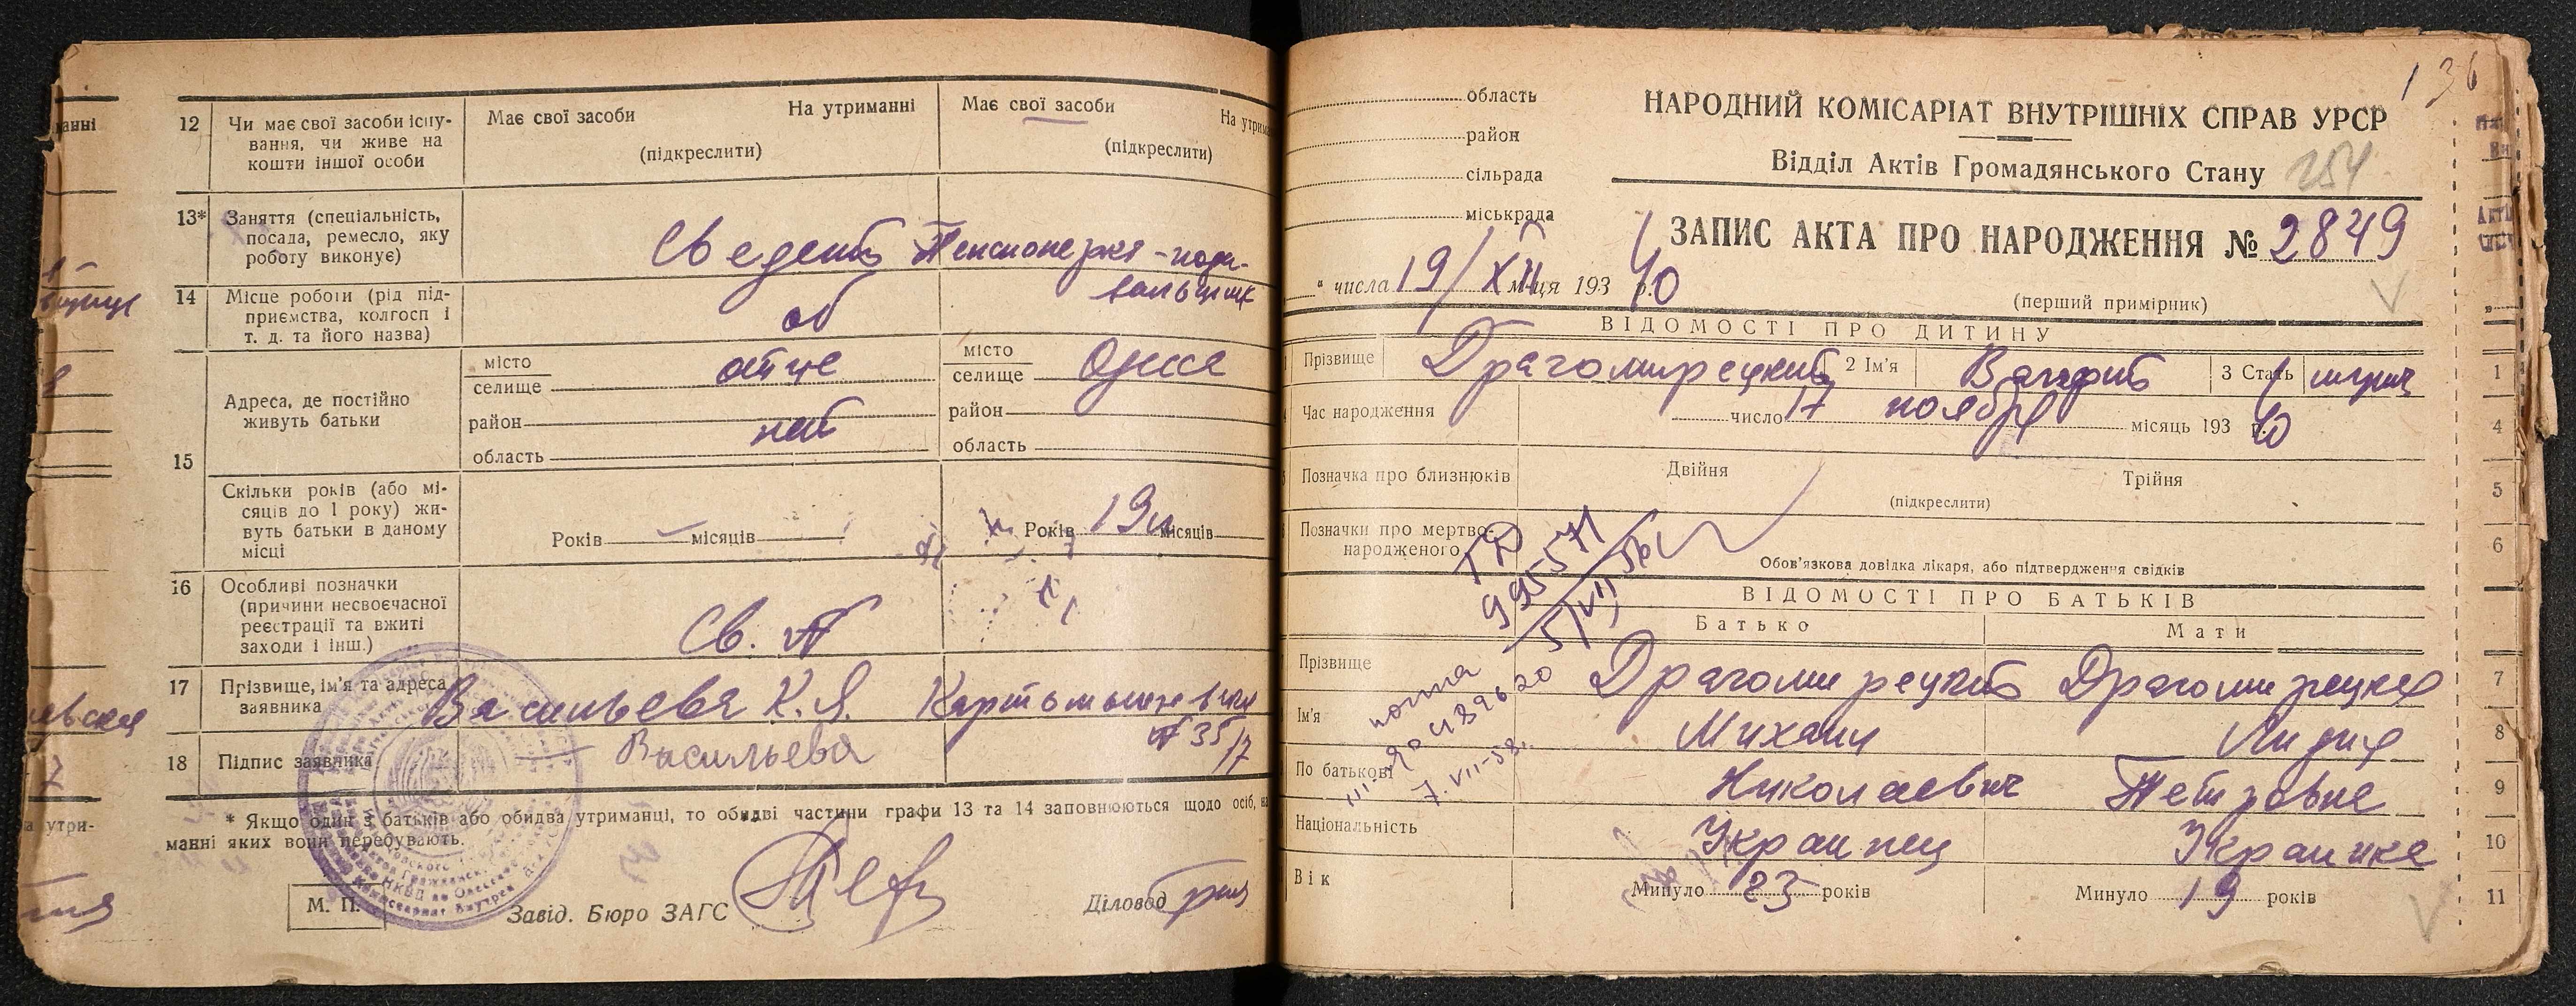 12 Чи має свої засоби існу-
вання, чи живе на
кошти іншої особи
Має свої засоби На утриманні
(підкреслити)
Має свої засоби На утрима
(підкреслити)
13* Заняття (спеціальність,
посада, ремесло, яку
роботу виконує)
Сведений Пенсионерка -
14 Місце роботи (рід під-
приємства, колгосп і
т. д. та його назва)
об
15 Адреса, де постійно
живуть батьки
місто
селище отце
район нет
область
місто
селище Одесса
район
область
Скільки років (або мі-
сяців до 1 року) жи-
вуть батьки в даному
місці
Років місяців
Років 19 місяців
16 Особливі позначки
(причини несвоєчасної
реєстрації та вжиті
заходи і інш.)
Св.
17 Прізвище, ім'я та адреса
заявника
Васильева К. Я.
№ 35/7
18 Підпис заявника
Васильева
* Якщо один з батьків або обидва утриманці, то обидві частини графи 13 та 14 заповнюються щодо осіб, на
манні яких вони перебувають.
М. П.
Завід. Бюро ЗАГС
Діловод
136
область
район
сільрада
міськрада
НАРОДНИЙ КОМІСАРІАТ ВНУТРІШНІХ СПРАВ УРСР
Відділ Актів Громадянського Стану 254
ЗАПИС АКТА ПРО НАРОДЖЕННЯ № 2849
" числа 19/XII м-ця 193 р. 40
(перший примірник)
ВІДОМОСТІ ПРО ДИТИНУ
Прізвище Драгомирецкий 2 Ім'я Валерий 3 Стать мужч
Час народження число 17 ноября місяць 193 р. 40 4
Позначка про близнюків Двійня Трійня 5
(підкреслити)
Позначки про мертво-
народженого 6
Обов'язкова довідка лікаря, або підтвердження свідків
995571
5/VII
7.VII-58
ВІДОМОСТІ ПРО БАТЬКІВ
Батько Мати
Прізвище Драгомирецкий Драгомирецкая 7
Ім'я Михаил Лидия 8
По батькові Николаевич Петровна 9
Національність Украинец Украинка 10
Вік Минуло 23 років Минуло 19 років 11